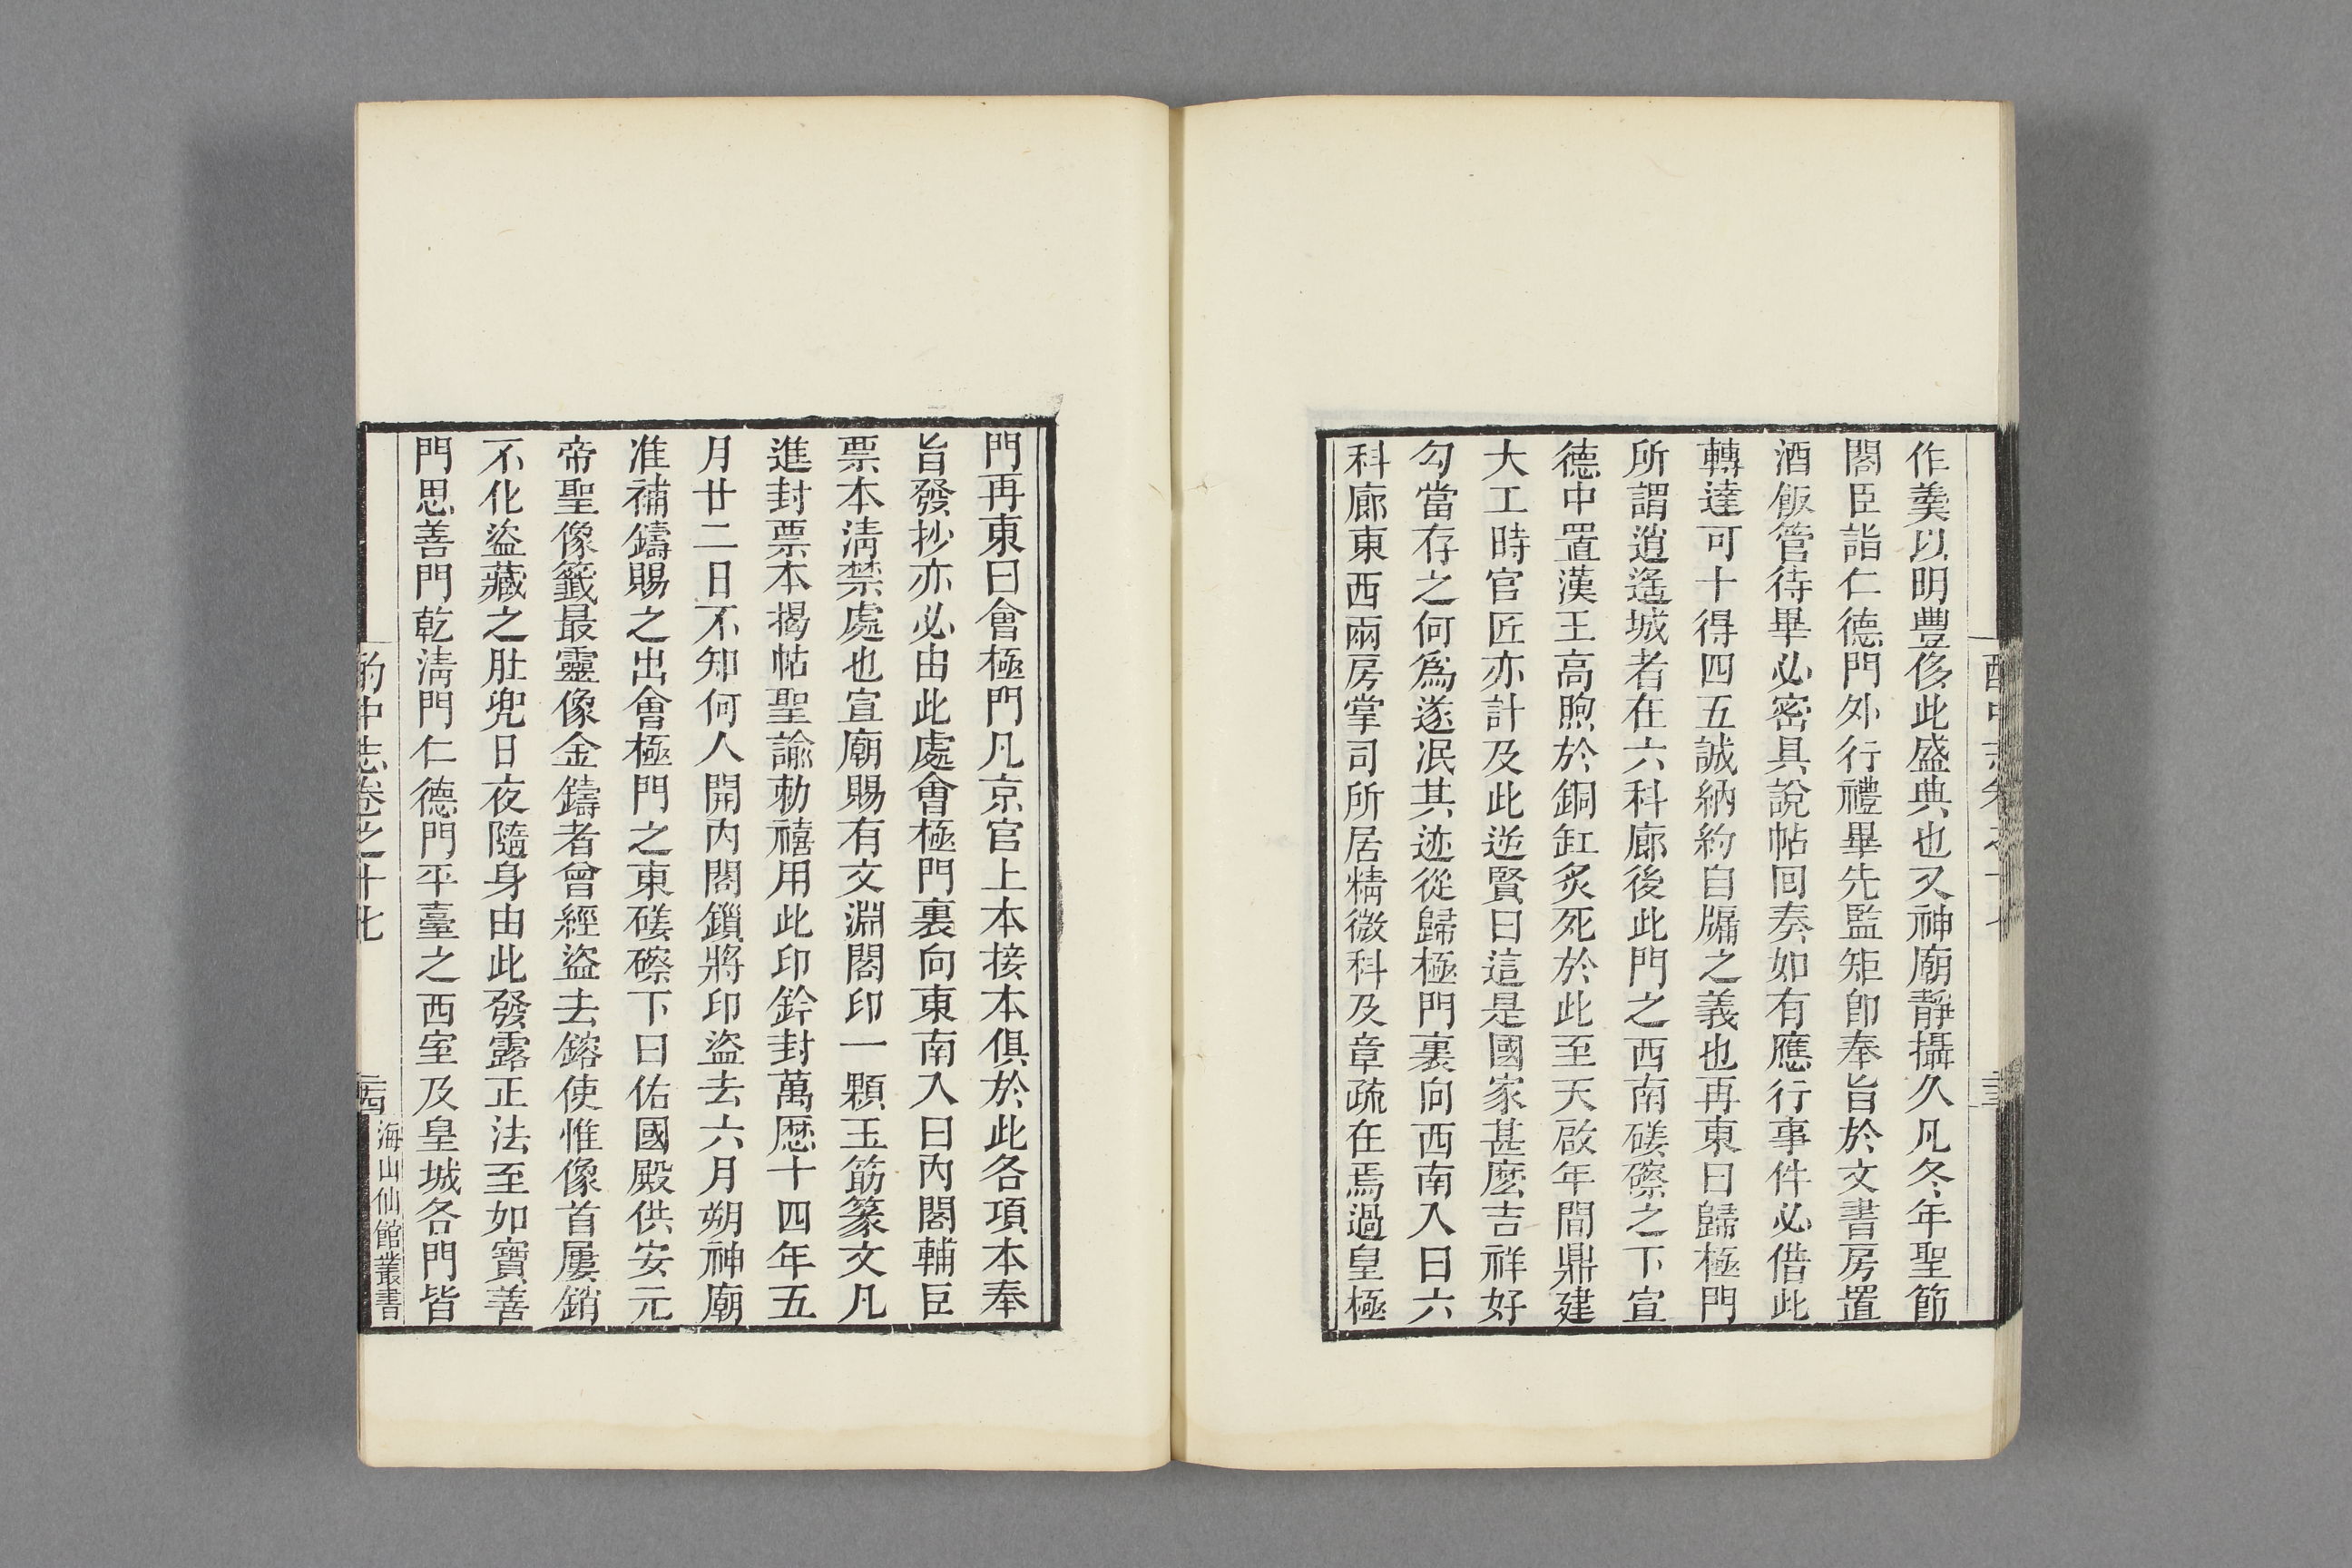 作羹以明豐侈此盛典也又神廟靜攝久凡冬年聖節
閣臣詣仁德門外行禮畢先監矩卽奉旨於文書房置
酒飯管待畢必密具說帖回奏如有應行事件必借此
轉達可十得四五誠納約自牖之義也再東曰歸極門
所謂逍遙城者在六科廊後此門之西南磋礤之下宣
德中置漢王高煦於銅缸炙死於此至天啟年間鼎建
大工時官匠亦計及此逆賢曰這是國家甚麽吉祥好
勾當存之何爲遂泯其迹從歸極門裏向西南入曰六
科廊東西兩房掌司所居精微科及章疏在焉過皇極
門再東曰會極門凡京官上本接本俱於此各項本奉
旨發抄亦必由此處會極門裏向東南入曰內閣輔臣
票本淸禁處也宣廟賜有文淵閣印一顆玉筯篆文凡
進封票本揭帖聖諭勅禧用此印鈐封萬歷十四年五
月廿二日不知何人開內閣鎖將印盜去六月朔神廟
准補鑄賜之出會極門之東磋礤下曰佑國殿供安元
帝聖像籤最靈像金鑄者曾經盜去鎔使惟像首屢銷
不化盜藏之肚兜日夜隨身由此發露正法至如寶善
門思善門乾淸門仁德門平臺之西室及皇城各門皆
酌中志卷之十七
二十四
海山仙館叢書